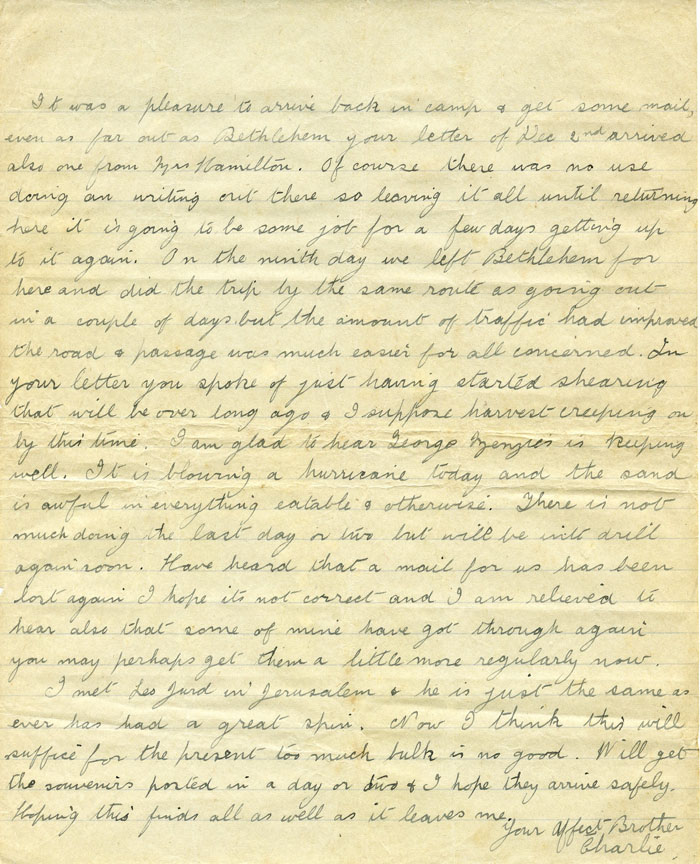 It was a pleasure to arrive back in camp & get some mail,
even as far out as Bethlehem your letter of Dec 2nd arrived
also one from Mrs Hamilton. Of course there was no use
doing an writing out there so leaving it all until returning
here it is going to be some job for a few days getting up
to it again. On the ninth day we left Bethlehem for
here and did the trip by the same route as going out
in a couple of days but the amount of traffic had improved
the road & passage was much easier for all concerned. In
your letter you spoke of just having started shearing
that will be over long ago & I suppose harvest creeping on
by this time. I am glad to hear George Menzies is keeping
well. It is blowing a hurricane today and the sand
is awful in everything eatable & otherwise. There is not
much doing the last day or two but will be into drill
again soon. Have heard that a mail for us has been
lost again I hope its not correct and I am relieved to
hear also that some of mine have got through again
you may perhaps get them a little more regularly now.
I met Les Jurd in Jerusalem & he is just the same as
ever has had a great spin. Now I think this will
suffice for the present too much bulk is no good. Will get
the souvenirs posted in a day or two & I hope they arrive safely.
Hoping this finds all as well as it leaves me.
Your Affect Brother
Charlie